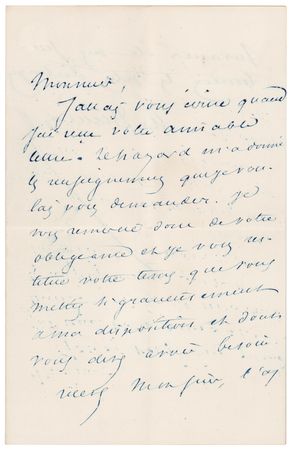 Monsieur,
J'allais vous écrire quand
j'ai reçu votre aimable
lettre. Le hazard m'a donné
les renseignemens que je vou-
lais vous demander. Je
vous remercie donc de votre
obligeance et je vous res-
titue votre tems que vous
mettez si gracieusement
à ma disposition et dont
vous devez avoir besoin
Monsieur,